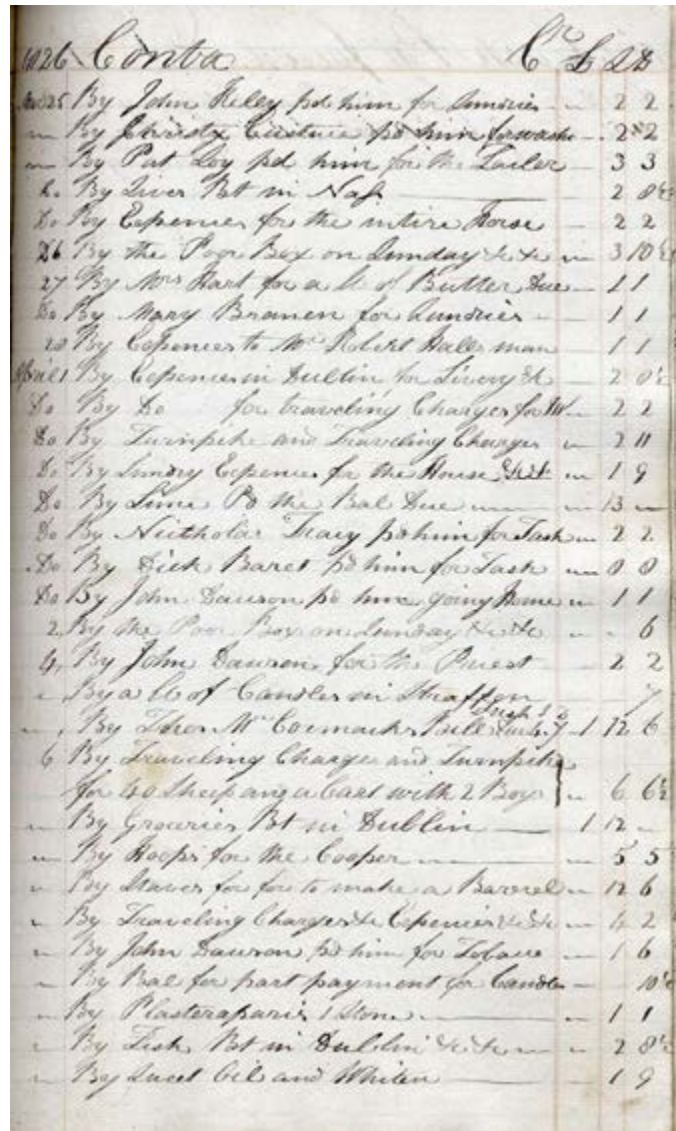 1826 Contra Cr £ s d
Mar 25 By John Kelley pd him for Sundries 2 2
By Christy pd him for 2 2
By Pat Loy pd him for the Tailer 3 3
Do By Liver Bt in Nass 2 8½
Do By Expences for the intire Horse 2 2
26 By the Poor Box on Sunday &c &c 3 10½
27 By Mrs Hart for a of Butter Due 1 1
Do By Mary Branen for Sundries 1 1
28 By Expences to Mr Robert Halls man 1 1
April 1 By Expences in Dublin for Livery &c 2 8½
Do By Do for traveling Charges for 2 2
Do By Turnpike and Traveling Charges 2 11
Do By Sundry Expences for the House &c &c 1 9
Do By Lime Pd the Bal Due 13
Do By Nicthola Tracy pd him for Task 2 2
Do By Dick Baret pd him for Task 8 8
Do By John Dawson pd him going Home 1 1
2 By the Poor Box on Sunday &c &c 6
4 By John Dawson for the Priest 2 2
By a of Candles in Straffon 7
By Thos Mc Cormacks Bill 1 12 6
6 By Traveling Charges and Turnpike
for 40 Sheep and a Cart with 2 Boys 6 6½
By Groceries Bt in Dublin 1 12
By Hoops for the Cooper 5 5
By Staves for for to make a Barrel 12 6
By Traveling Charges &c Expences &c &c 4 2
By John Dawson pd him for Tobaco 1 6
By Bal for part payment for Candles 10½
By Plasteraparis 1 Stone 1 1
By Fish Bt in Dublin &c &c 2 8½
By Sweet Oil and Whiten 1 9